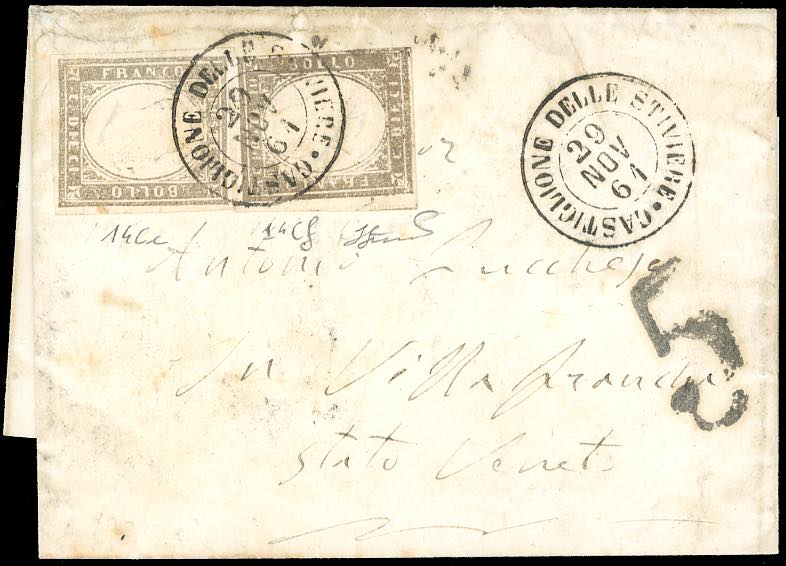 FRANCO
C. DIECI
C. DIECI
BOLLO
BOLLO
C. DIECI
C. DIECI
FRANCO
CASTIGLIONE DELLE STIVIERE
29
NOV
61
CASTIGLIONE DELLE STIVIERE
29
NOV
61
14Ce
Antonio Lucchese
5
In Villafranca
Stato Veneto